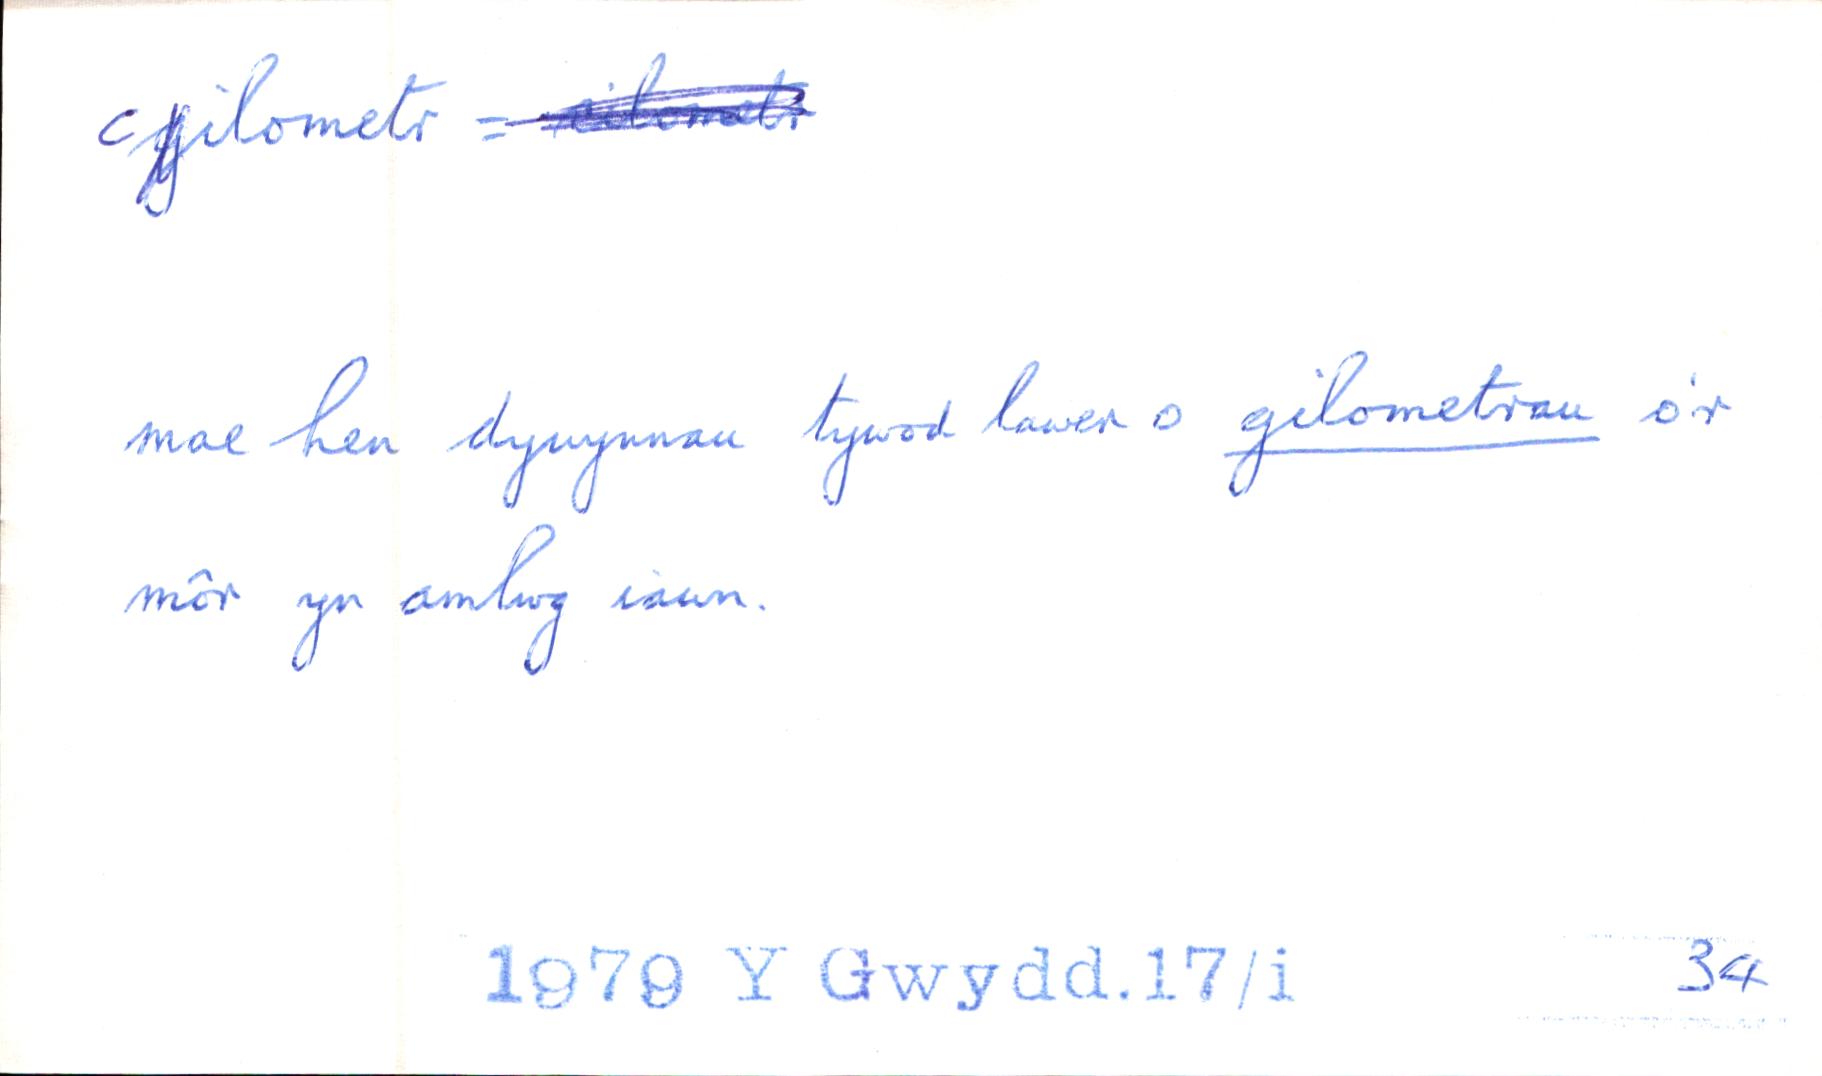 cilometr =
mae hen dywynnau tywod lawer o gilometrau o'r
môr yn amlwg iawn.
1979 Y Gwydd.17/i 34